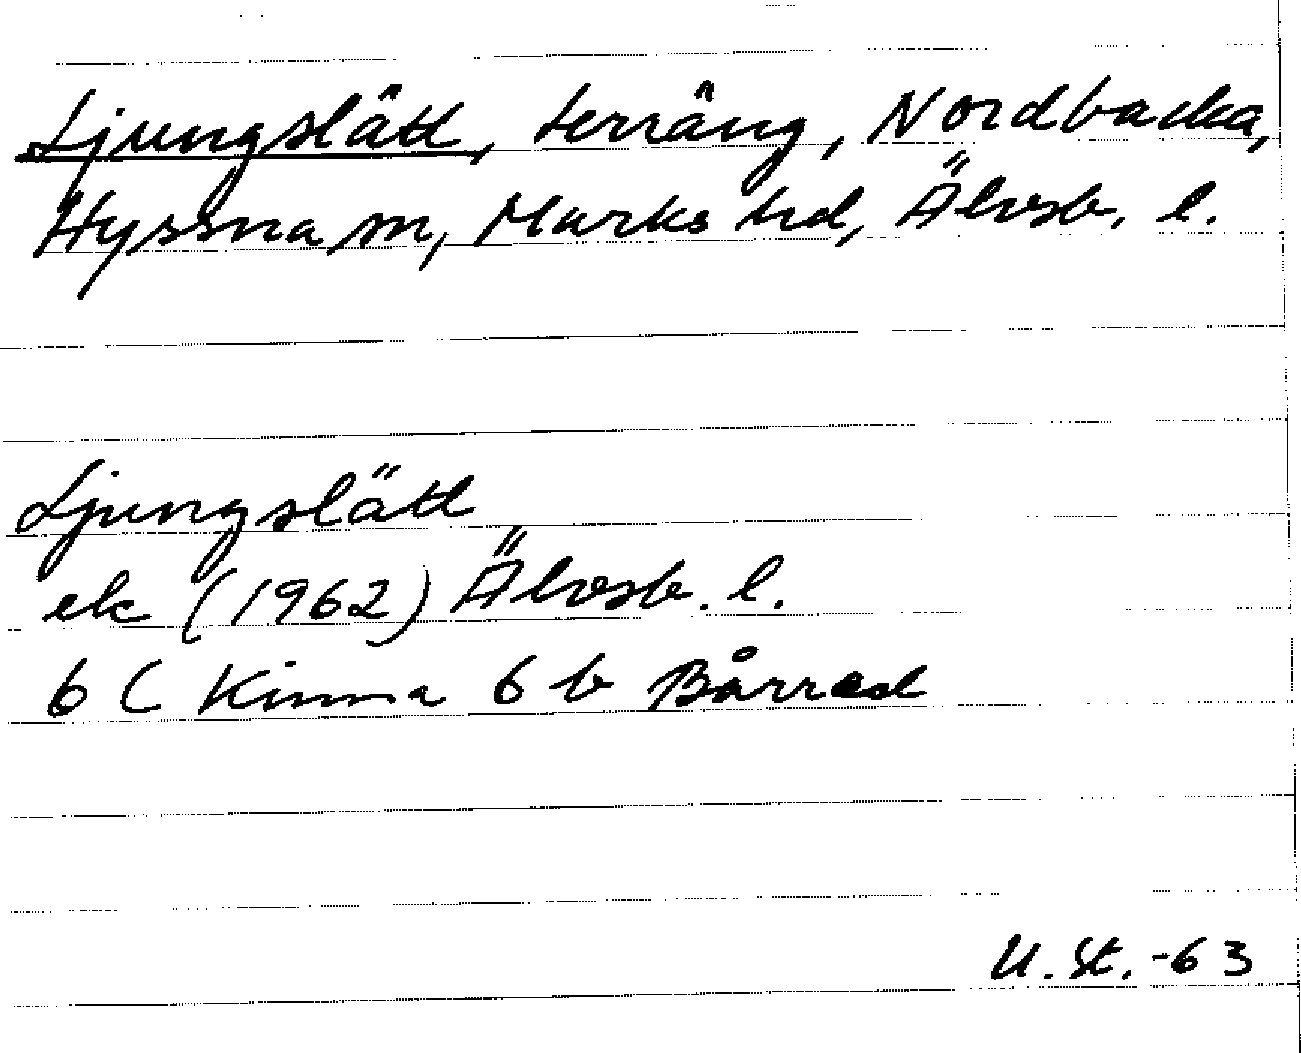 Ljungslätt, terräng, Nordbacka,
Hyssna sn, Marks hd, Älvsb. l.
Ljungslätt
ek (1962) Älvsb. l.
6 C Kinna 6 b Bårred
U. St. -63